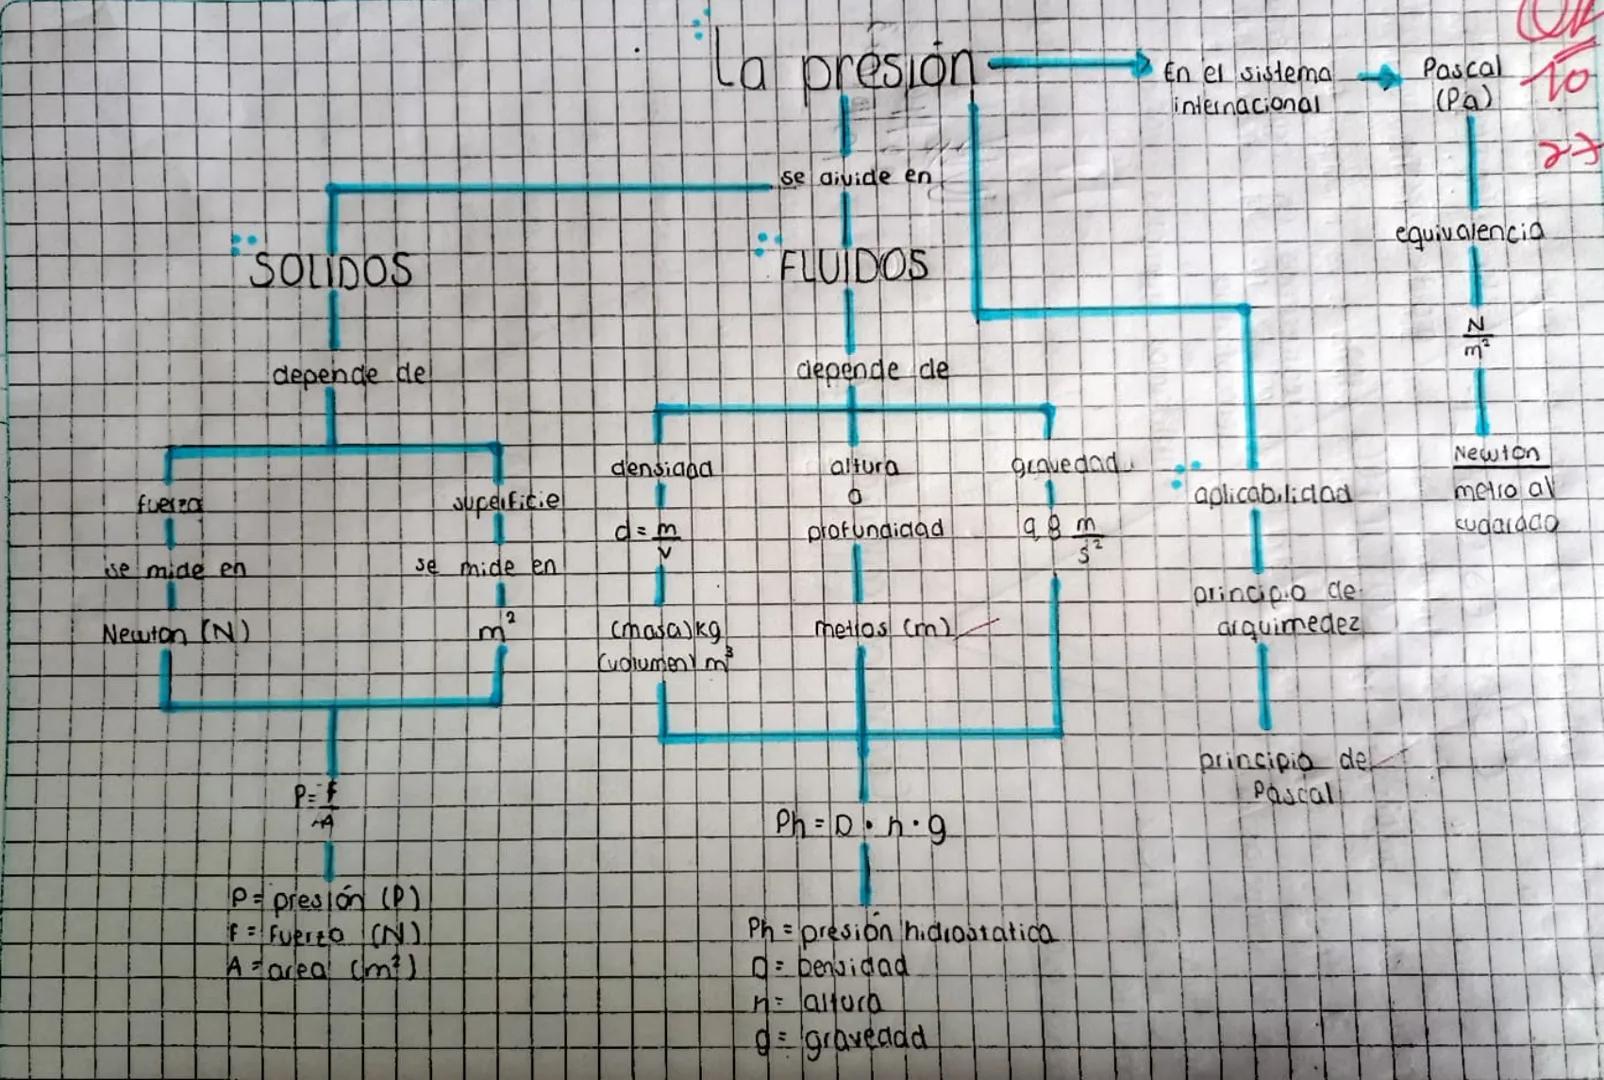 La presión
En el sistema
internacional
Pascal
(Pa)
10
27
se divide en
equivalencia
N
m²
Newton
metro al
cuadrado
SOLIDOS
depende de
fuerza
superficie
se mide en
se mide en
Newton (N)
m²
P= f
A
P= presión (P)
f = fuerza (N)
A = area (m²)
FLUIDOS
depende de
densidad
altura
gravedad
o
profundidad
d = m
v
9.8 m
s²
(masa) kg
(volumen) m³
metros (m)
Ph = D · h · g
Ph = presión hidrostatica
D = Densidad
h = altura
g = gravedad
aplicabilidad
principio de
arquimedez
principio de
Pascal